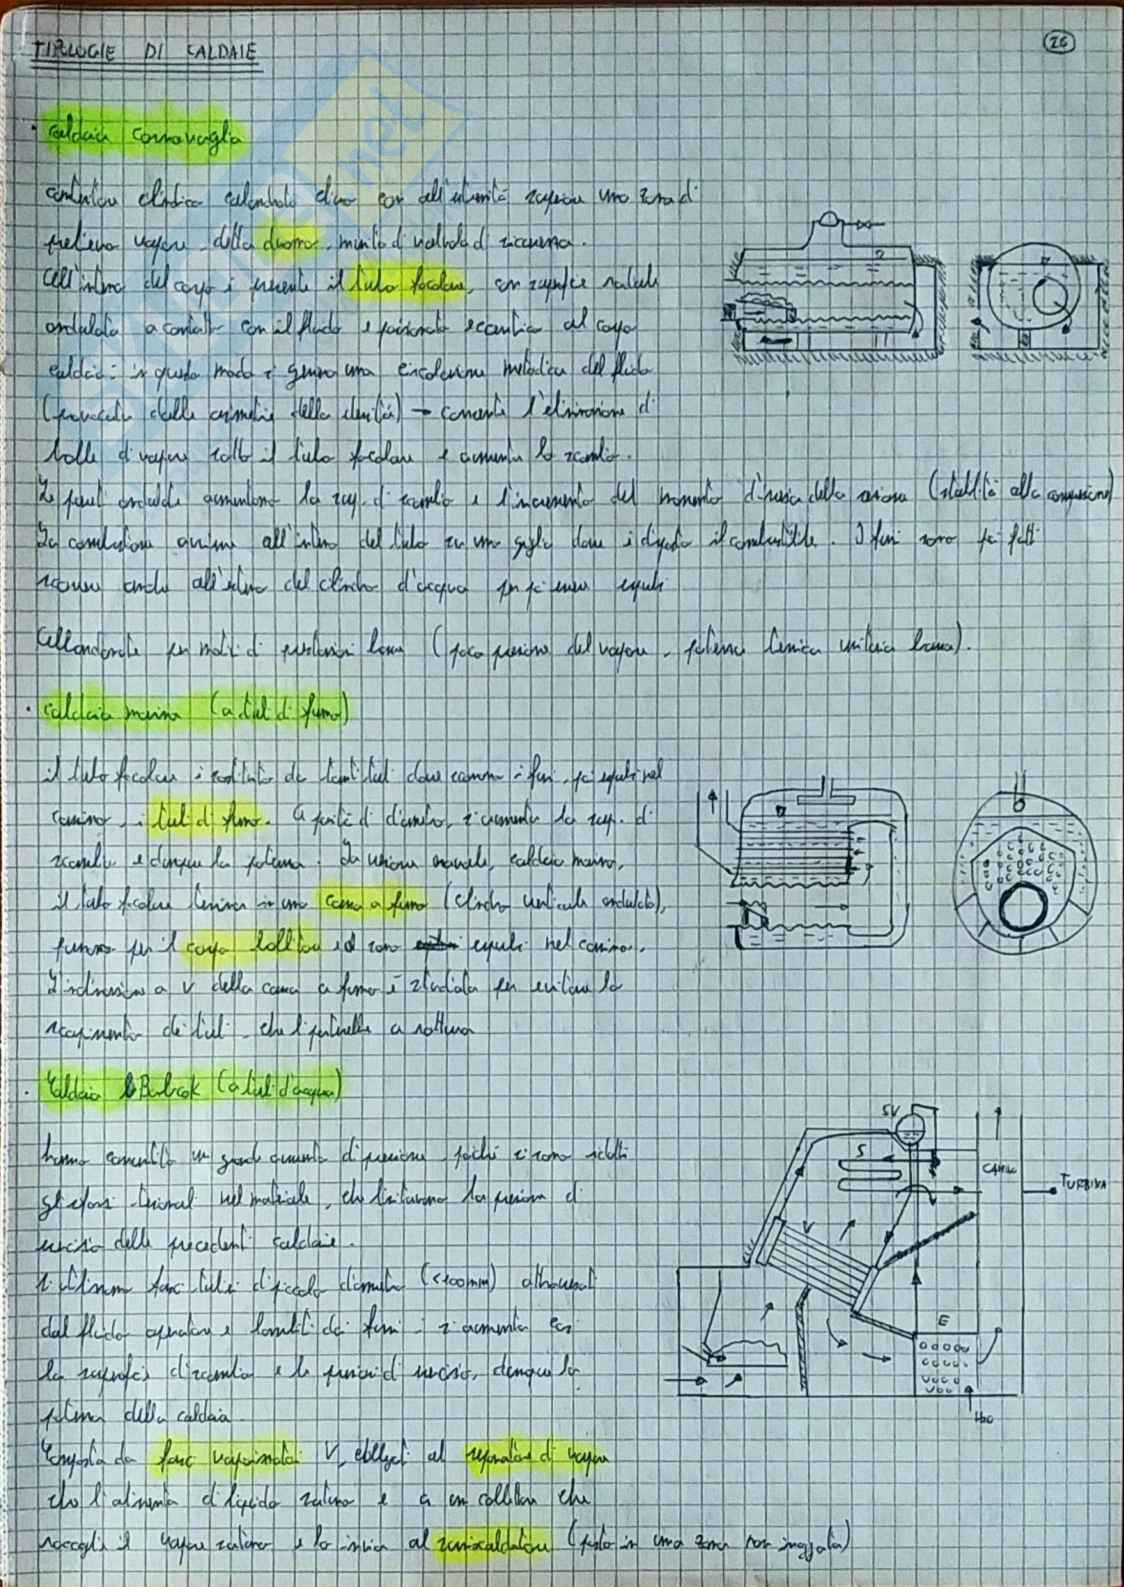 TIPOLOGIE DI CALDAIE
26
· Caldaia Cornovaglia
contenitore cilindrico calandrato chiuso con all'estremità superiore una zona di
prelievo vapore, detta duomo, munito di valvola di sicurezza.
All'interno del corpo è presente il tubo focolare, con superfice radiale
ondulata a contatto con il fluido e posizionato eccentrico al corpo
caldaia: in questo modo si genera una circolazione metodica del fluido
(provocata dalle asimmetrie della densità) → consente l'eliminazione di
bolle di vapore sotto il tubo focolare e aumenta lo scambio.
Le pareti ondulate aumentano la sup. di scambio e l'incremento del momento d'inerzia della sezione (stabilità alla compressione)
La combustione avviene all'interno del tubo su una griglia dove è disposto il combustibile. I fumi sono poi fatti
scorrere anche all'esterno del cilindro d'acqua per poi essere espulsi
Abbandonate per motivi di prestazioni basse (poca pressione del vapore, potenza termica unitaria bassa).
· Caldaia marina (a tubi di fumo)
il tubo focolare è sostituito da tanti tubi dove corrono i fumi, poi espulsi nel
camino, i tubi di fumo. A parità di diametro, si aumenta la sup. di
scambio e dunque la potenza. La versione navale, caldaia marina,
il tubo focolare termina in una cassa a fumo (cilindro verticale ondulato),
passano per il corpo bollitore ed sono espulsi nel camino.
L'inclinazione a V della cassa a fumo è studiata per evitare lo
scoprimento dei tubi, che li porterebbe a rottura
· Caldaia Babcok (a tubi d'acqua)
hanno consentito un grande aumento di pressione, poichè si sono ridotti
gli sforzi tensionali nel materiale, che limitavano la pressione di
esercizio delle precedenti caldaie.
Si utilizzano fasci tubieri di piccolo diametro (<100mm) attraversati
dal fluido operatore e lambiti dai fumi → si aumenta così
la superficie di scambio e le pressioni di esercizio, dunque la
potenza della caldaia.
Composta da fasci vaporizzatori V, collegati al separatore di vapore
che l'alimenta di liquido saturo e a un collettore che
raccoglie il vapore saturo e lo invia al surriscaldatore (posto in una zona non irraggiata)
SV
S
CAMINO
TURBINA
V
E
H2O